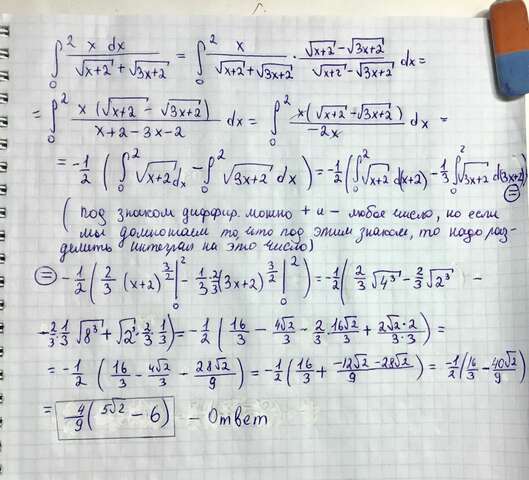 ∫₀² x dx / (√(x+2) + √(3x+2)) = ∫₀² x / (√(x+2) + √(3x+2)) · (√(x+2) − √(3x+2)) / (√(x+2) − √(3x+2)) dx =
= ∫₀² x(√(x+2) − √(3x+2)) / (x+2−3x−2) dx = ∫₀² x(√(x+2) − √(3x+2)) / (−2x) dx =
= −1/2 (∫₀² √(x+2) dx − ∫₀² √(3x+2) dx) = −1/2 (∫₀² √(x+2) d(x+2) − 1/3 ∫₀² √(3x+2) d(3x+2)) =
(под знаком диффир. можно + и − любое число, но если
мы домножаем то, что под этим знаком, то надо раз-
делить интеграл на это число)
= −1/2 (2/3 (x+2)^(3/2) |₀² − 1/3 · 2/3 (3x+2)^(3/2) |₀²) = −1/2 (2/3 √4³ − 2/3 √2³ −
− 2/3 · 1/3 √8³ + √2³ · 2/3 · 1/3) = −1/2 (16/3 − 4√2/3 − 2/3 · 16√2/3 + 2√2·2/(3·3)) =
= −1/2 (16/3 − 4√2/3 − 28√2/9) = −1/2 (16/3 + (−12√2 − 28√2)/9) = −1/2 (16/3 − 40√2/9)
= 4/9 (5√2 − 6) – Ответ